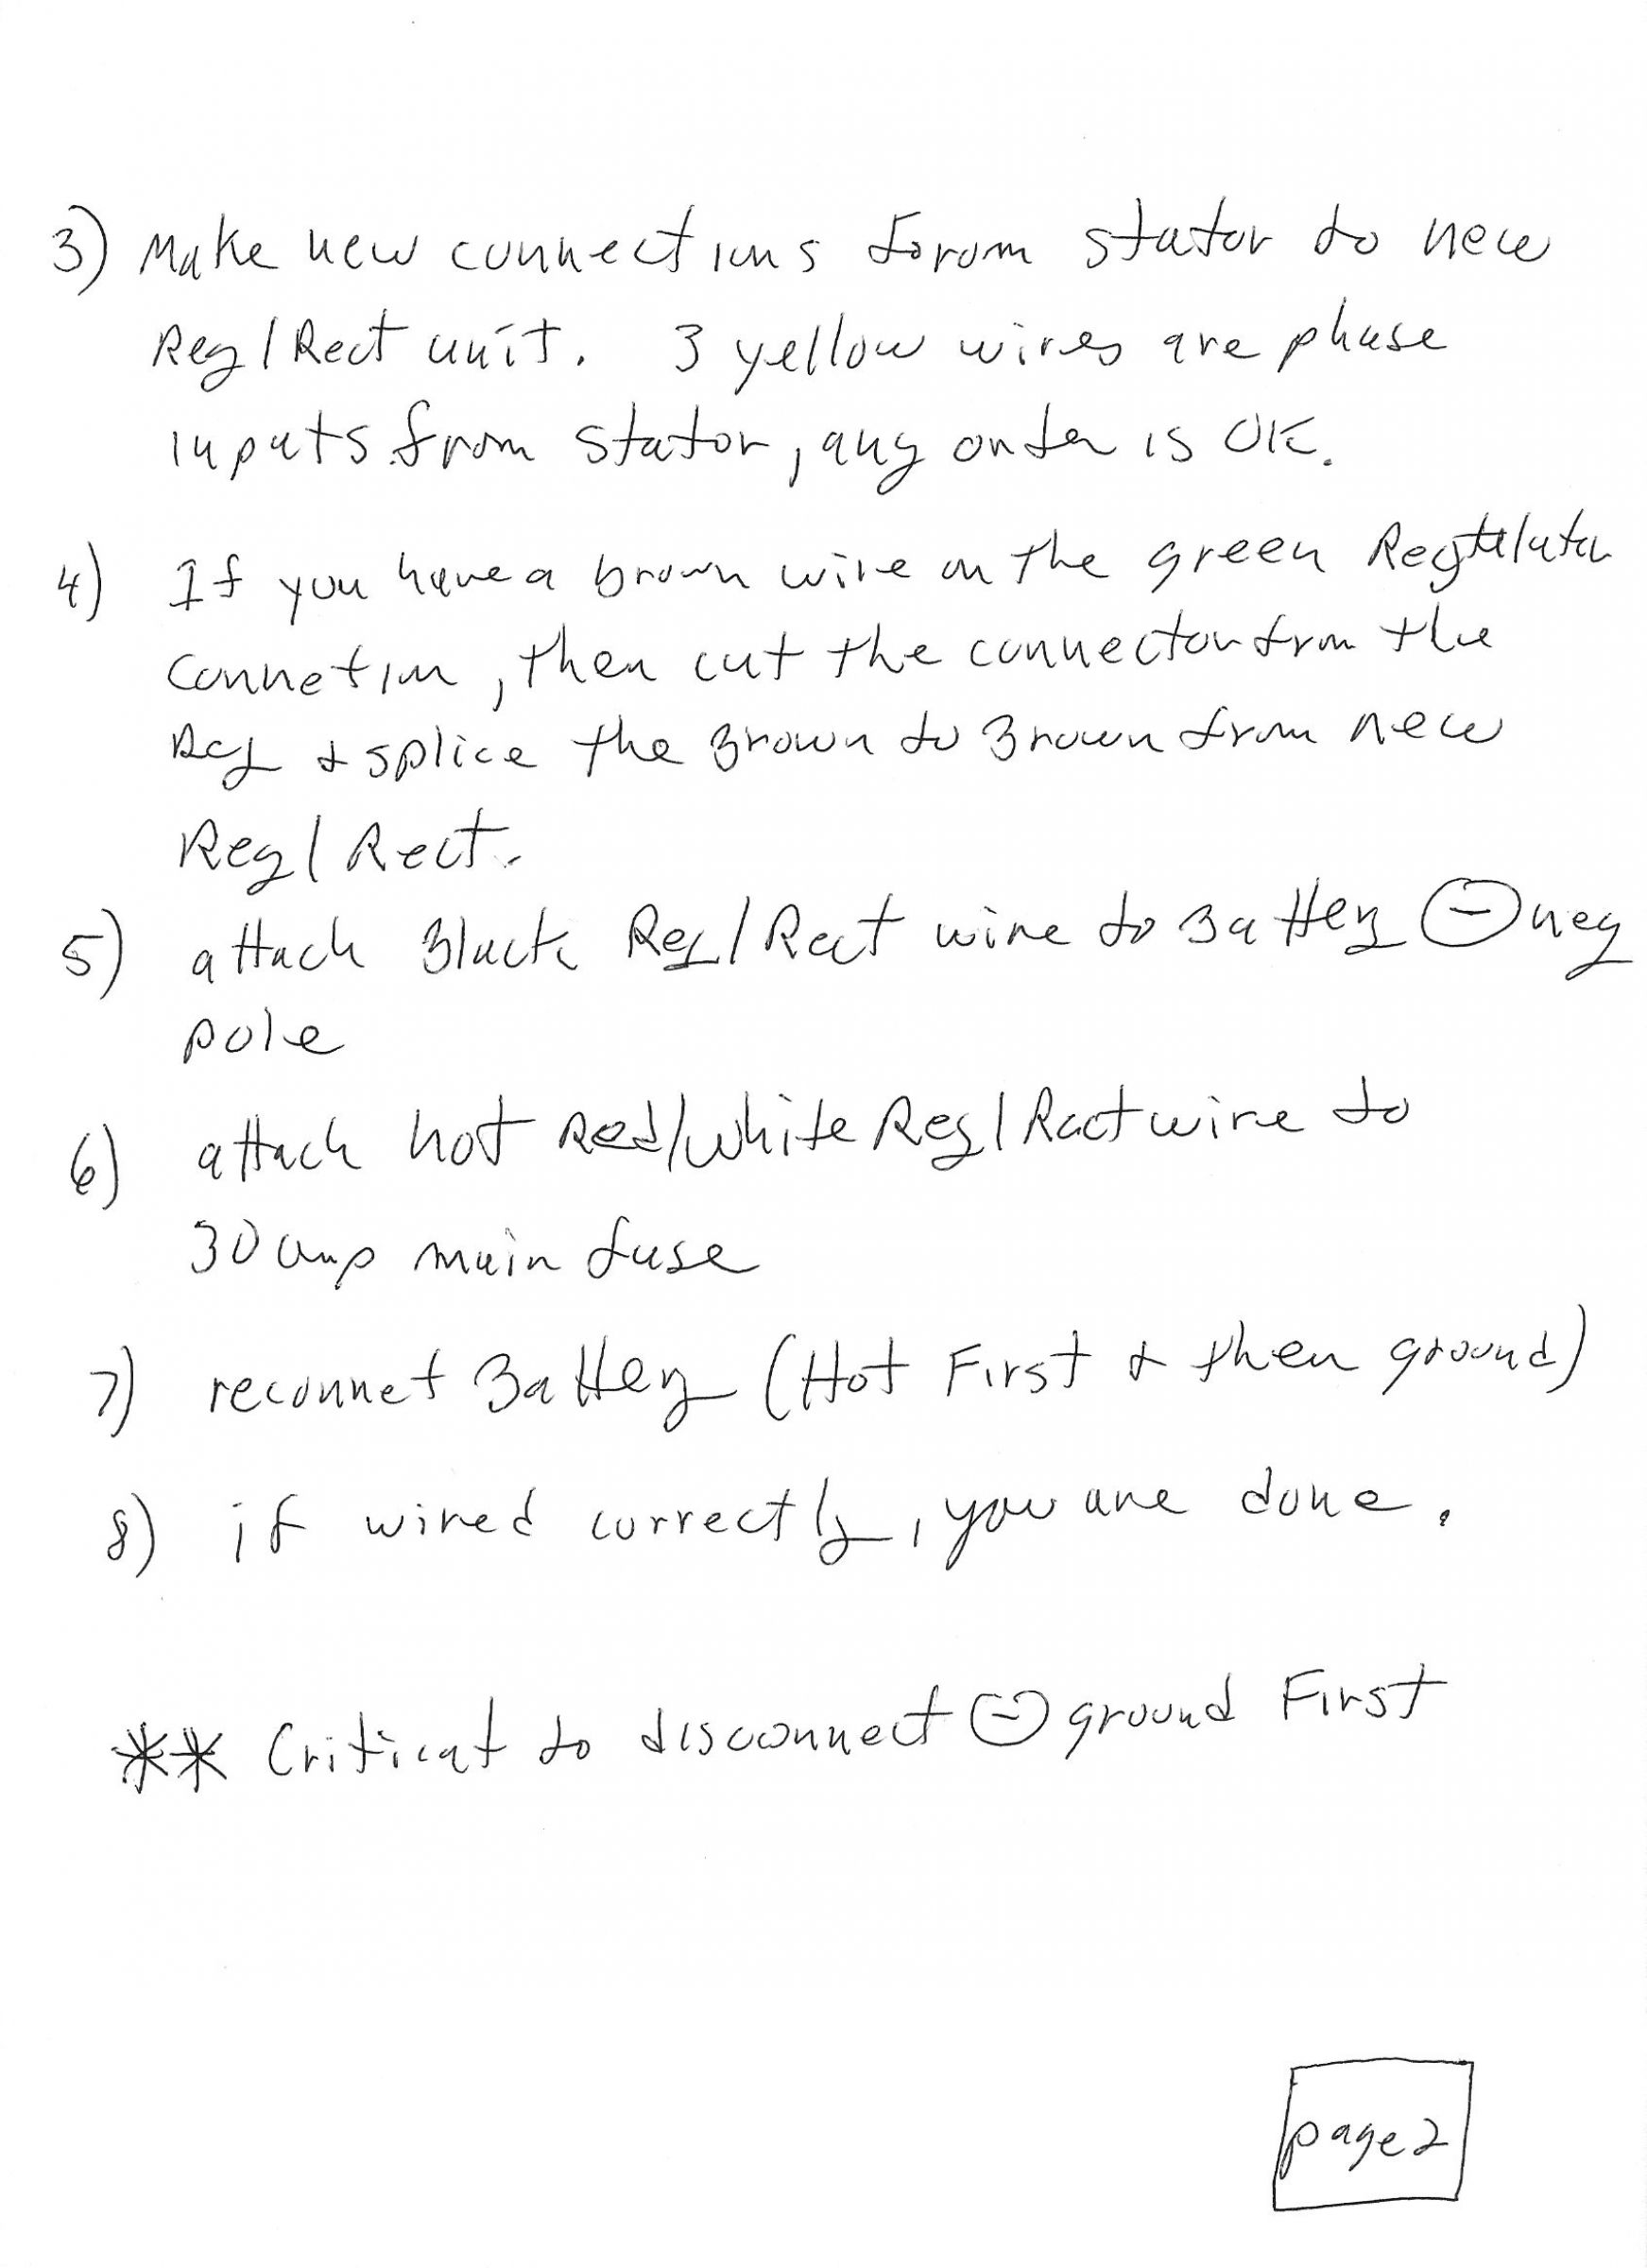 3) Make new connections forom stator to new
Reg/Rect unit. 3 yellow wires are phase
inputs from stator, any order is OK.
4) If you have a brown wire on the green Regtulator
Connetion, then cut the connector from the
Reg & splice the Brown to Brown from new
Reg/Rect.
5) attach Black Reg/Rect wire to Battery ⊖ neg
pole
6) attach hot Red/White Reg/Rect wire to
30 amp main fuse
7) reconnet Battery (Hot First & then ground)
8) if wired correctly, you are done.
** Critical to disconnect ⊖ ground First
page 2